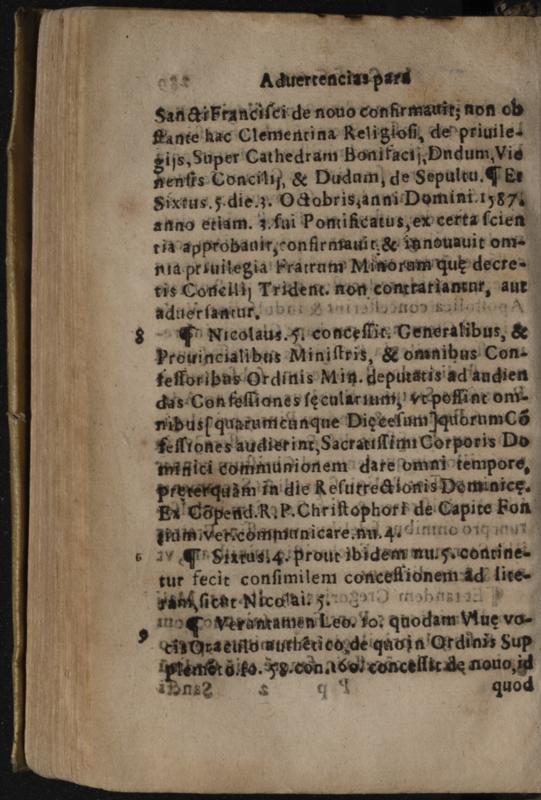 Aduertencias para
Sancti Francisci de nouo confirmauit; non ob
stante hac Clementina Religiosi, de priuile-
gijs, Super Cathedram Bonifacij, Dudum, Vie
nensis Concilij, & Dudum, de Sepultu. ¶ Et
Sixtus. 5. die. 3. Octobris, anni Domini. 1587.
anno etiam. 3. sui Pontificatus, ex certa scien
tia approbauit, confirmauit, & innouauit om-
nia priuilegia Fratrum Minorum quę decre-
tis Concilij Trident. non contrariantur, aut
aduersantur.
8 ¶ Nicolaus. 5. concessit. Generalibus, &
Prouincialibus Ministris, & omnibus Con-
fessoribus Ordinis Min. deputatis ad audien
das Confessiones sęcularium, vt possint om-
nibus [quarumcunque Dięcesum] quorum Cō
fessiones audierint, Sacratissimi Corporis Do
minici communionem dare omni tempore,
pręterquàm in die Resurrectionis Dominicę.
Ex Cōpend. R. P. Christophori de Capite Fon
tium. ver. communicare. nu. 4.
6 ¶ Sixtus. 4. prout ibidem nu. 5. contine-
tur fecit consimilem concessionem ad lite-
ram, sicut Nicolai. 5.
9 ¶ Veruntamen Leo. 10. quodam Viuę vo-
cis Oraculo authētico, de quo in Ordinis Sup
plemēto. fo. 58. con. 160. concessit de nouo, id
quod